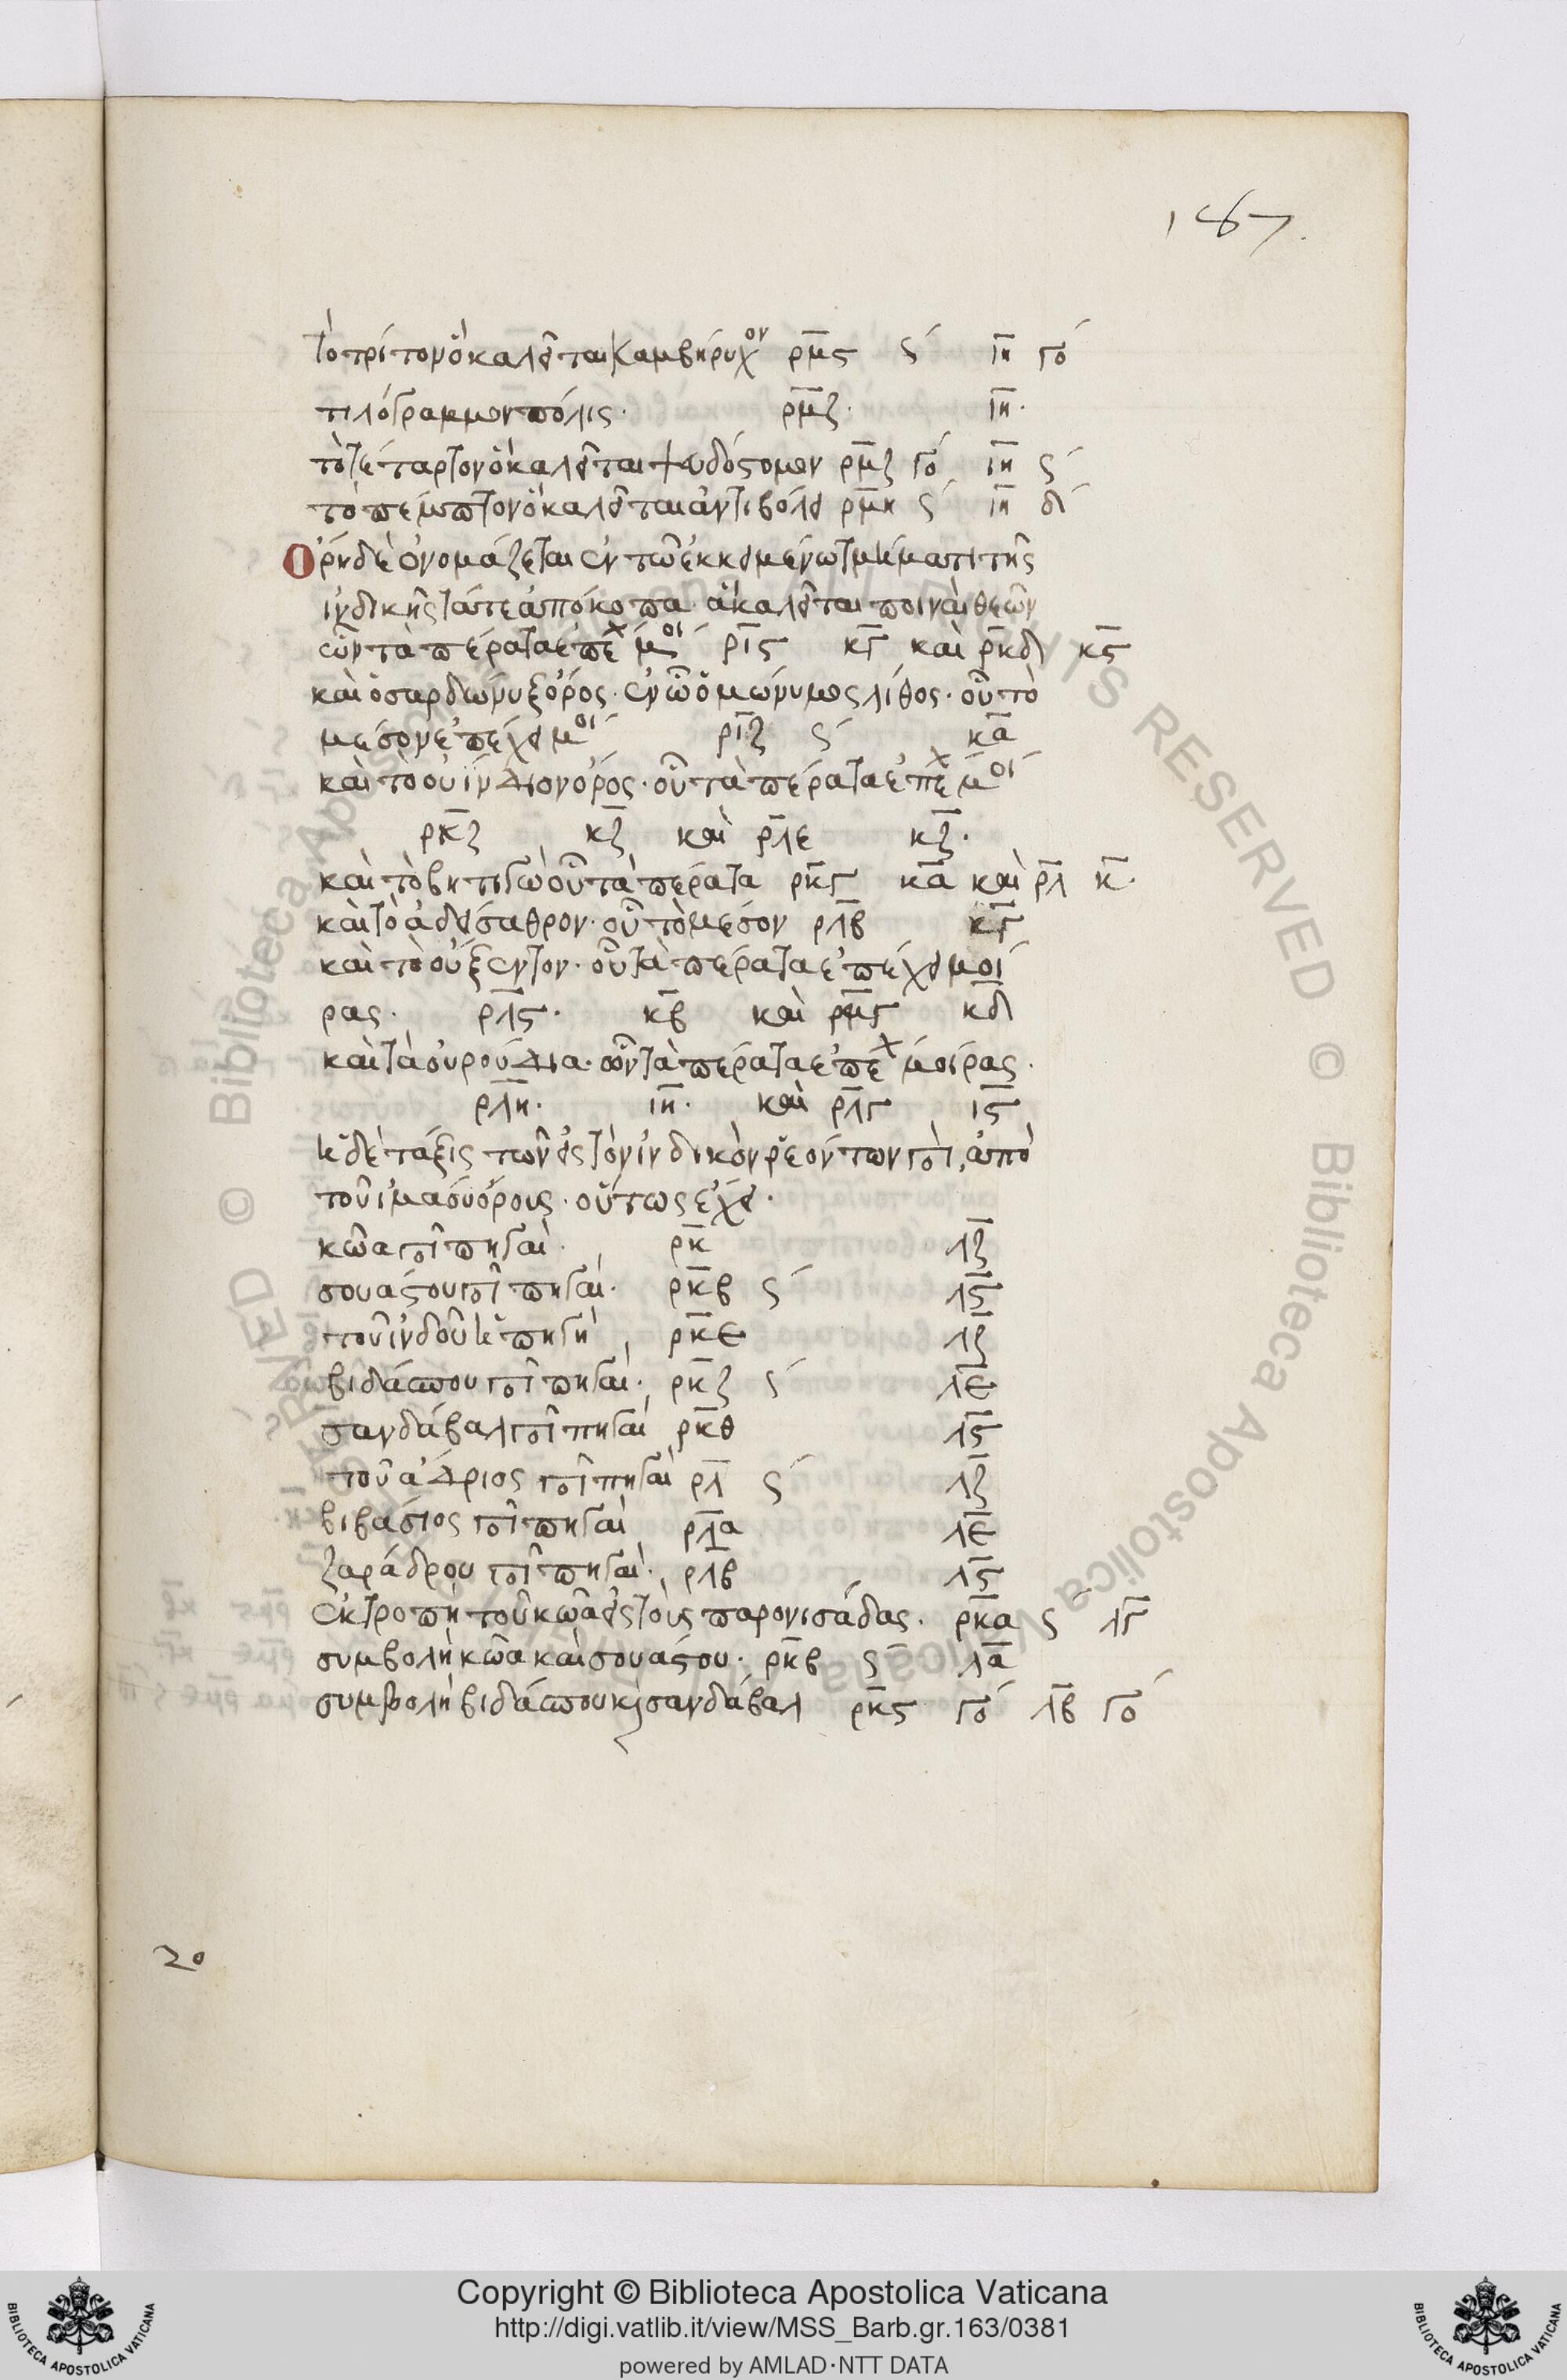 187.
τὸ τρίτον ὃ καλεῖται καμβήρυχον ρμς ς´ ιη γο´
τιλόγραμμον πόλις· ρμζ· ιη·
τὸ τέταρτον ὃ καλεῖται ψευδόστομον ρμζ γο´ ιη ς´
τὸ πέμπτον ὃ καλεῖται ἀντιβολεί ρμη ς´ ιη δ´
Ὄρη δὲ ὀνομάζεται ἐν τῷ ἐκκειμένῳ τμήματι τῆς
ἰνδικῆς τά τε ἀπόκοπα· ἃ καλεῖται ποιναὶ θεῶν
ὧν τὰ πέρατα ἐπεχ μοι´ ρις κγ καὶ ρκδ κς
καὶ ὁ σαρδώνυξ ὄρος· ἐν ᾧ ὁμώνυμος λίθος· οὗ τὸ
μέσον ἐπέχει μοι´ ριζ ς´ κα
καὶ τὸ οὐίνδιον ὄρος· οὗ τὰ πέρατα ἐπεχ μοι´
ρκζ κζ καὶ ρλε κζ·
καὶ τὸ βηττιγὼ οὗ τὰ πέρατα ρκγ κα καὶ ρλ κ·
καὶ τὸ ἀδείσαθρον· οὗ τὸ μέσον ρλβ κγ
καὶ τὸ οὔξεντον· οὗ τὰ πέρατα ἐπέχει μοί
ρας· ρλς· κβ καὶ ρμγ κδ
καὶ τὰ ὀυρούδια· ὧν τὰ πέρατα ἐπεχ μοίρας·
ρλη· ιη· καὶ ρλγ ις
ἡ δὲ τάξις τῶν εἰς τὸν ἰνδικὸν ῥεόντων ποτ, ἀπὸ
τοῦ ἰμάου ὄρους· οὕτως ἔχει·
κώα ποτ πηγαὶ· ρκ λζ
σουάστου ποτ πηγαὶ· ρκβ ς´ λς
τοῦ ἰνδοῦ ἡ πηγὴ, ρκε λζ
βιδάσπου ποτ πηγαὶ· ρκζ ς´ λε
σανδάβαλ ποτ πηγαὶ ρκθ λς
τοῦ ἄδριος ποτ πηγαὶ ρλ ς´ λζ
βιβάσιος ποτ πηγαὶ ρλα λε
ζαράδρου ποτ πηγαὶ· ρλβ λς
ἐκτροπὴ τοῦ κώα εἰς τοὺς παρονισάδας· ρκα ς´ λγ
συμβολὴ κώα καὶ σουάστου· ρκβ ς´ λα
συμβολὴ βιδάσπου κ σανδάβαλ ρκς γο´ λβ γο´
20
© Biblioteca Apostolica Vaticana
RESERVED © Biblioteca Apostolica Vaticana
Copyright © Biblioteca Apostolica Vaticana
http://digi.vatlib.it/view/MSS_Barb.gr.163/0381
powered by AMLAD·NTT DATA
BIBLIOTECA APOSTOLICA VATICANA
BIBLIOTECA APOSTOLICA VATICANA